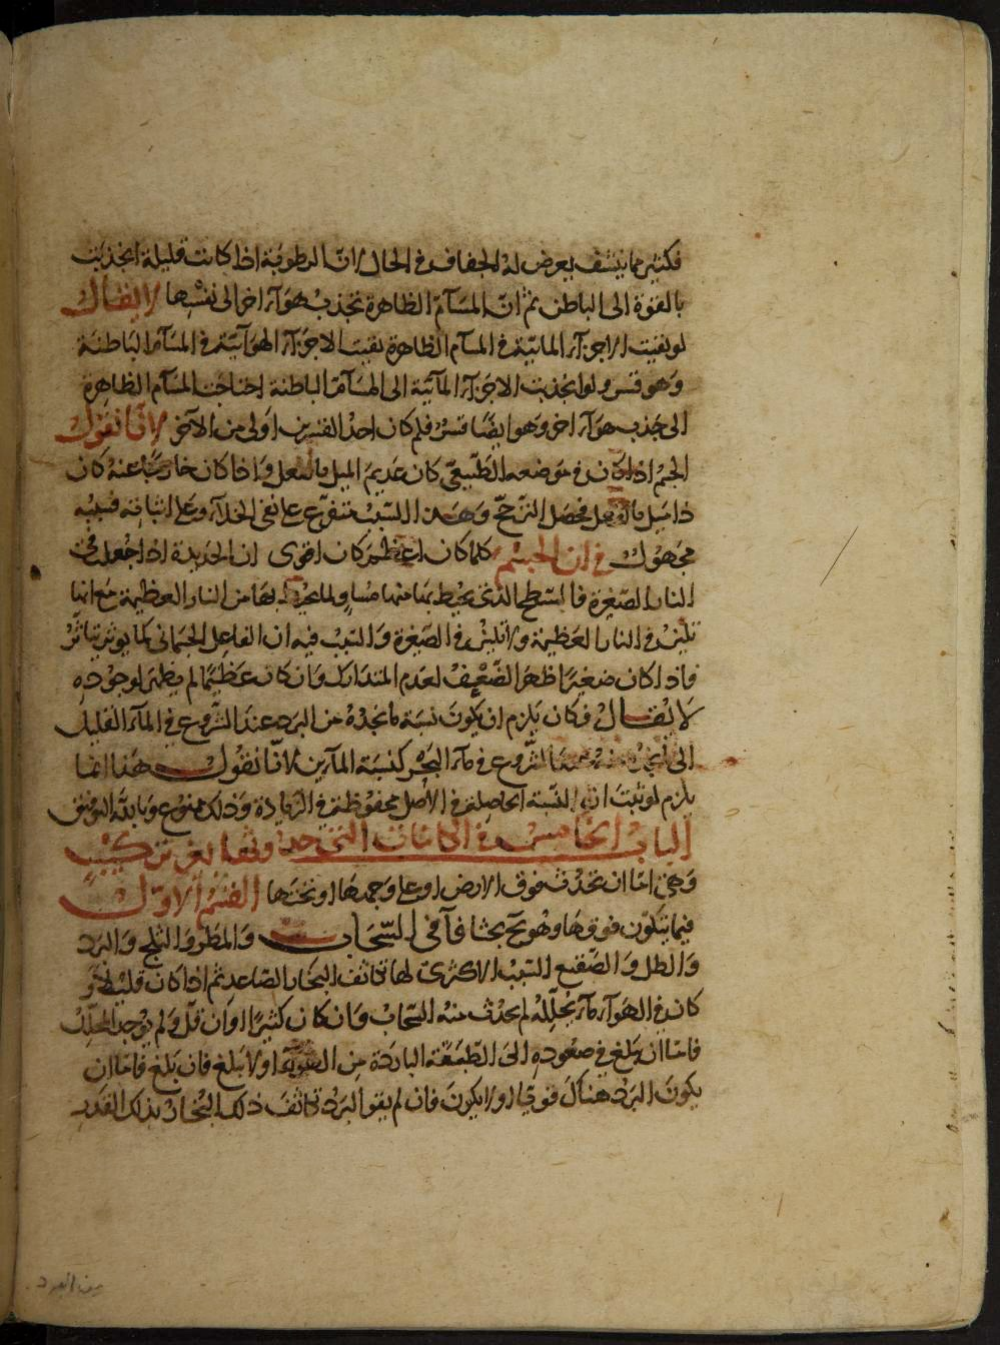 فكثير مما ينشف يعرض له الجفاف فى الحال لان الرطوبة اذا كانت قليلة انجذبت
بالقوة الى الباطن ثم ان المسآم الظاهرة تجذب هوآء اخر الى نفسها لا يقال
لو بقيت الاجزآء المائية فى المسآم الظاهرة بقيت الاجزآء الهوآئية فى المسآم الباطنة
وهو قسر ولو انجذبت الاجزآء المآئية الى المسآم الباطنة احتاجت المسآم الظاهرة
الى جذب هوآء اخر وهو ايضًا قسر فلم كان احد القسرين اولى من الآخر لانا نقول
الجسم اذا كان فى موضعه الطبيعى كان عديم الميل بالفعل واذا كان خارجًا عنه كان
ذا ميل بالفعل فحصل الترجح وهذا السبب متفرع على نفى الخلآء وعلى اثباته فسببه
مجهول فى ان الجسم كلما كان اعظم كان اقوى ان الحديدة اذا جعلت فى
النار الصغيرة فالسطح الذى يحيط بها منها مساو لما يحيط بها من النار العظيمة مع انها
تلين فى النار العظيمة ولا تلين فى الصغيرة والسبب فيه ان الفاعل الجسمانى كما يوثر يتاثر
فاذا كان صغيرًا ظهر الضعف لعدم المتدارك وان كان عظيمًا لم يظهر لوجوده
لا يقال فكان يلزم ان يكون نسبة ما نجده من البرد عند الشروع فى المآء القليل
الى ما نجده منه عند الشروع فى مآء البحر كنسبة المآئين لانا نقول هذا انما
يلزم لو ثبت ان النسبة الحاصلة فى الاصل محفوظة فى الزيادة وذلك ممنوع وبالله التوفيق
الباب الخامس فى الكائنات التى حدوثها بغير تركيب
وهى اما ان تحدث فوق الارض او على وجهها او تحتها القسم الاول
فيما يتكون فوقها وهو تح بحثا فآ فى السحاب والمطر والثلج والبرد
والطل والصقيع السبب الاكثرى لها تكاثف البخار الصاعد ثم اذا كان قليلا
كان فى الهوآء ما يحلله لم يحدث منه السحاب وان كان كثيرًا او ان قل ولم يوجد المحلل
فاما ان يبلغ فى صعوده الى الطبقة الباردة من الهوآء او لا يبلغ فان بلغ فاما ان
يكون البرد هناك قويا او لا يكون فان لم يقو البرد تكاثف ذلك البخار بذلك القدر
من البرد